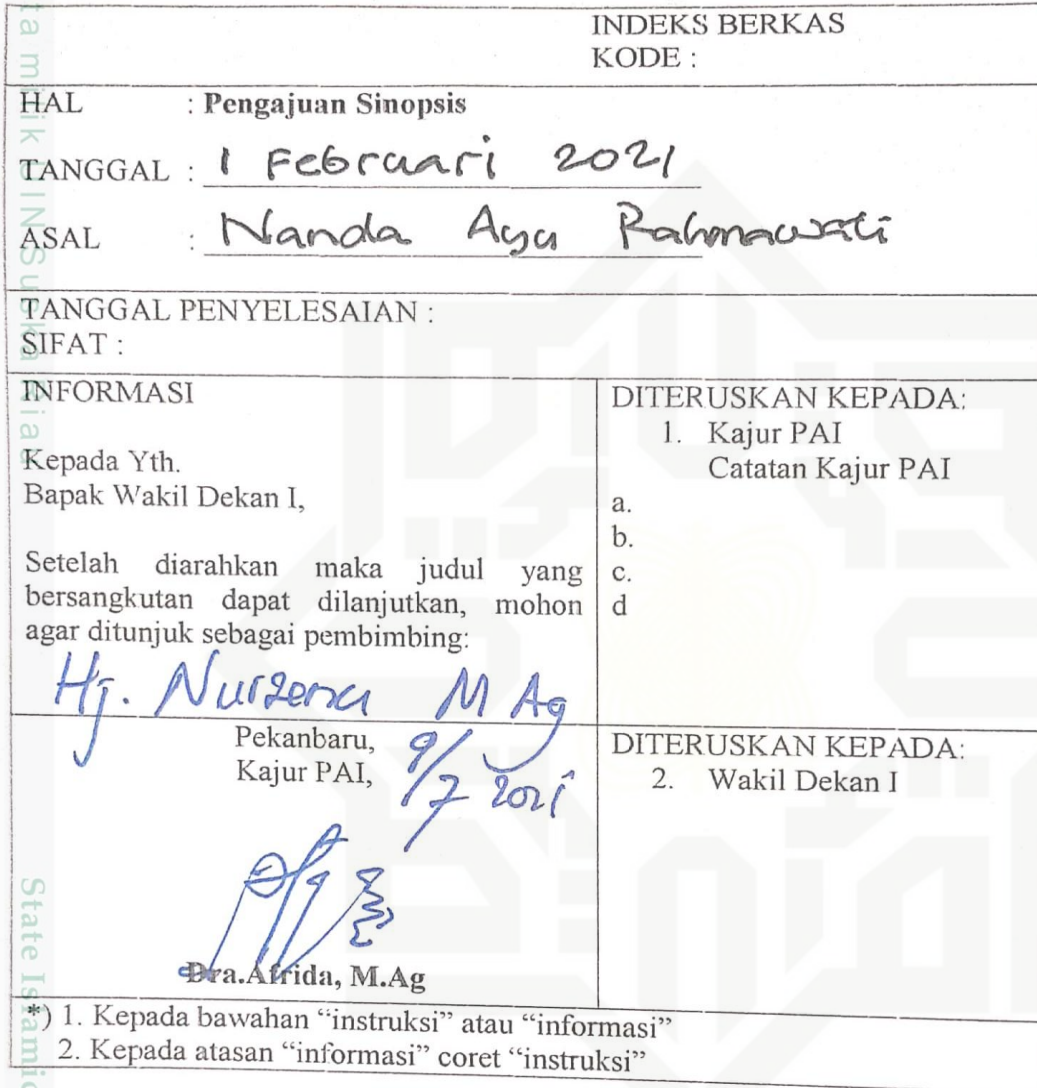 INDEKS BERKAS
KODE :
HAL : Pengajuan Sinopsis
TANGGAL : 1 Februari 2021
ASAL : Nanda Ayu Rahmawati
TANGGAL PENYELESAIAN :
SIFAT :
INFORMASI
Kepada Yth.
Bapak Wakil Dekan I,
Setelah diarahkan maka judul yang
bersangkutan dapat dilanjutkan, mohon
agar ditunjuk sebagai pembimbing:
Hj. Nurzena M Ag
DITERUSKAN KEPADA:
1. Kajur PAI
Catatan Kajur PAI
a.
b.
c.
d
Pekanbaru, 9/7 2021
Kajur PAI,
Dra.Afrida, M.Ag
DITERUSKAN KEPADA:
2. Wakil Dekan I
*) 1. Kepada bawahan “instruksi” atau “informasi”
2. Kepada atasan “informasi” coret “instruksi”
ta milik UIN Suska Riau
State Islamic